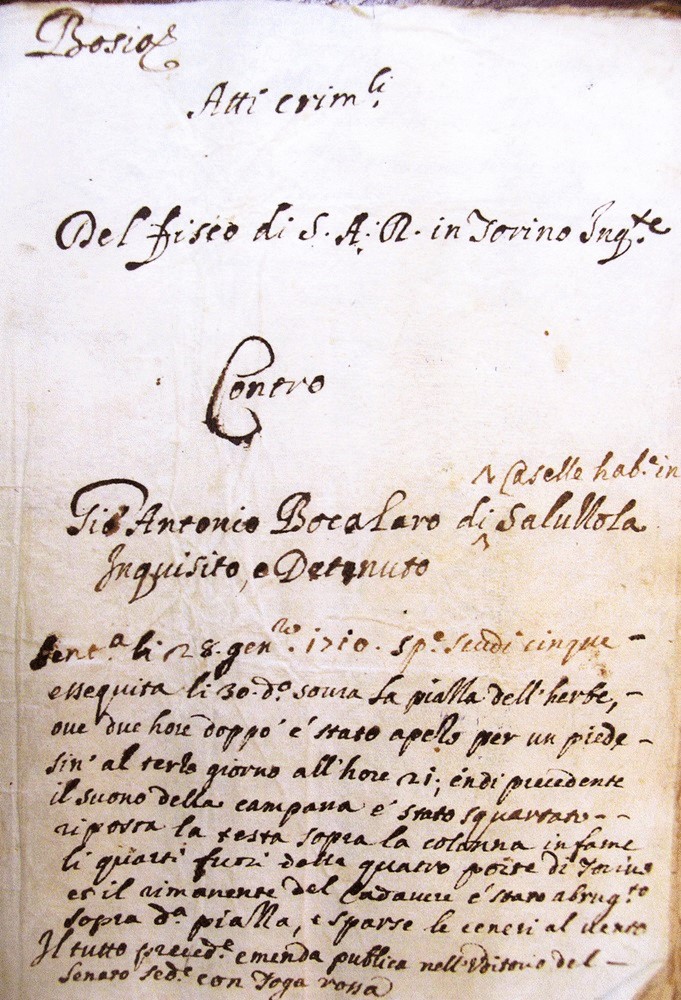 Bosio
Atti crim.li
Del fisco di S. A. R. in Torino Inq.te
Contro
^ Caselle hab.e in
Gio Antonio Bocalaro di ^ Salussola
Inquisito, e Detenuto
Sent.a li 28. gen.ro 1710. sp.e scudi cinque –
essequita li 30. d.o soura la piassa dell'herbe, –
oue due hore doppo' é stato apeso per un piede –
sin' al terso giorno all'hore 21; éndi precedente
il suono della campana é stato squartato – –
riposta la testa sopra la colonna infame
li quarti fuori delle quatro porte di Torino
et il rimanente del Cadauere é stato abrug.to
sopra d.a piassa, e sparse le ceneri al uento
Il tutto preced.e emenda publica nell'Vditorio del –
Senato sed.e con Toga rossa